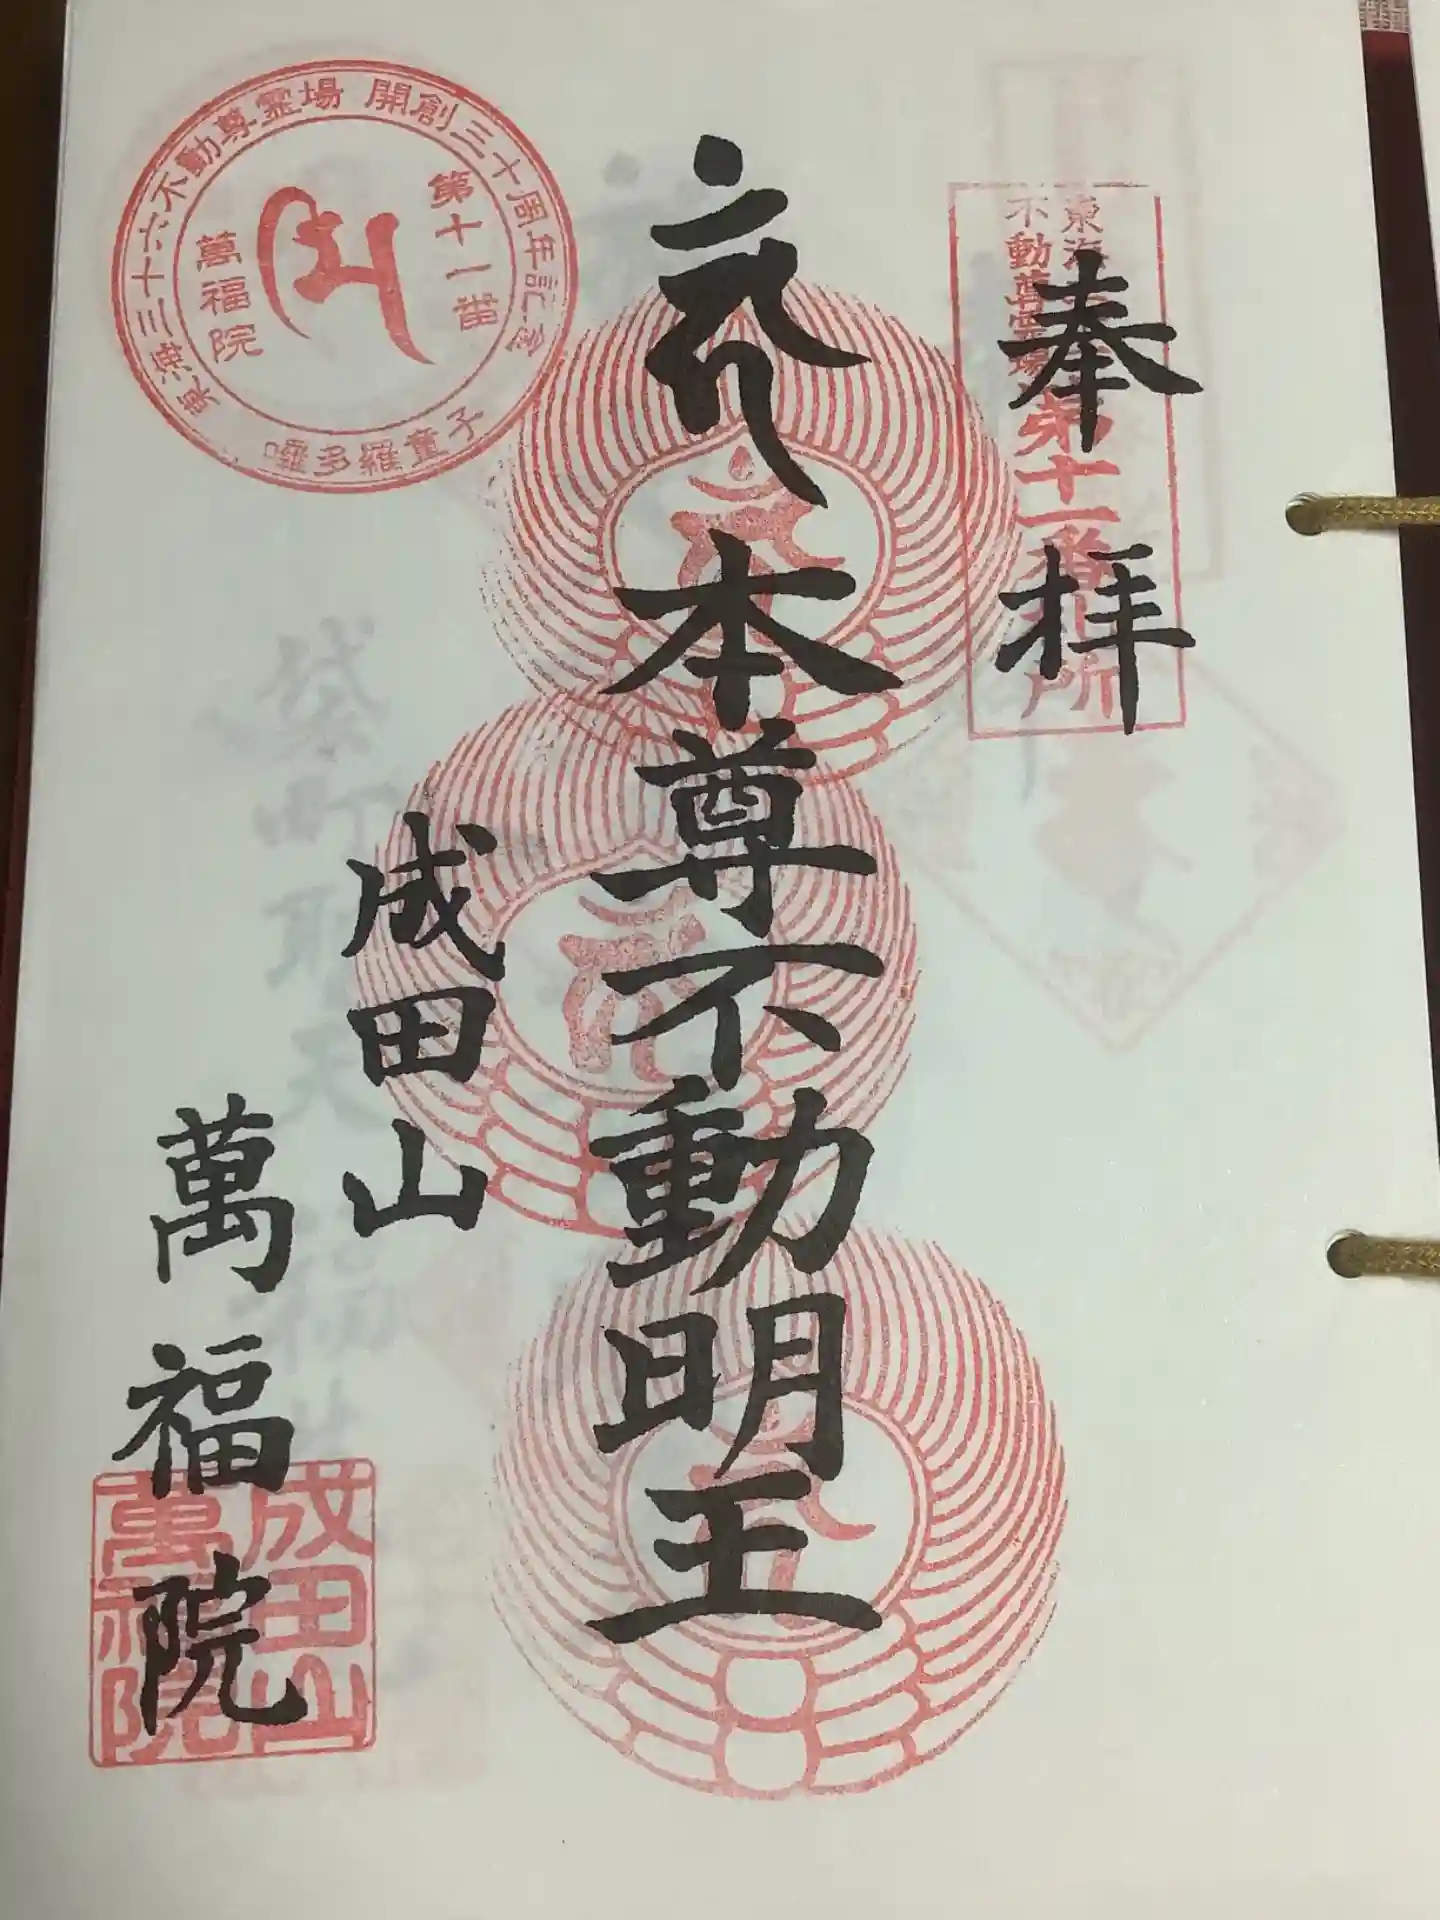 奉拝
東海
不動尊霊場
第十一番札所
本尊不動明王
成田山
萬福院
東海三十六不動尊霊場 開創三十周年記念
第十一番
萬福院
多羅童子
成田山
萬福院